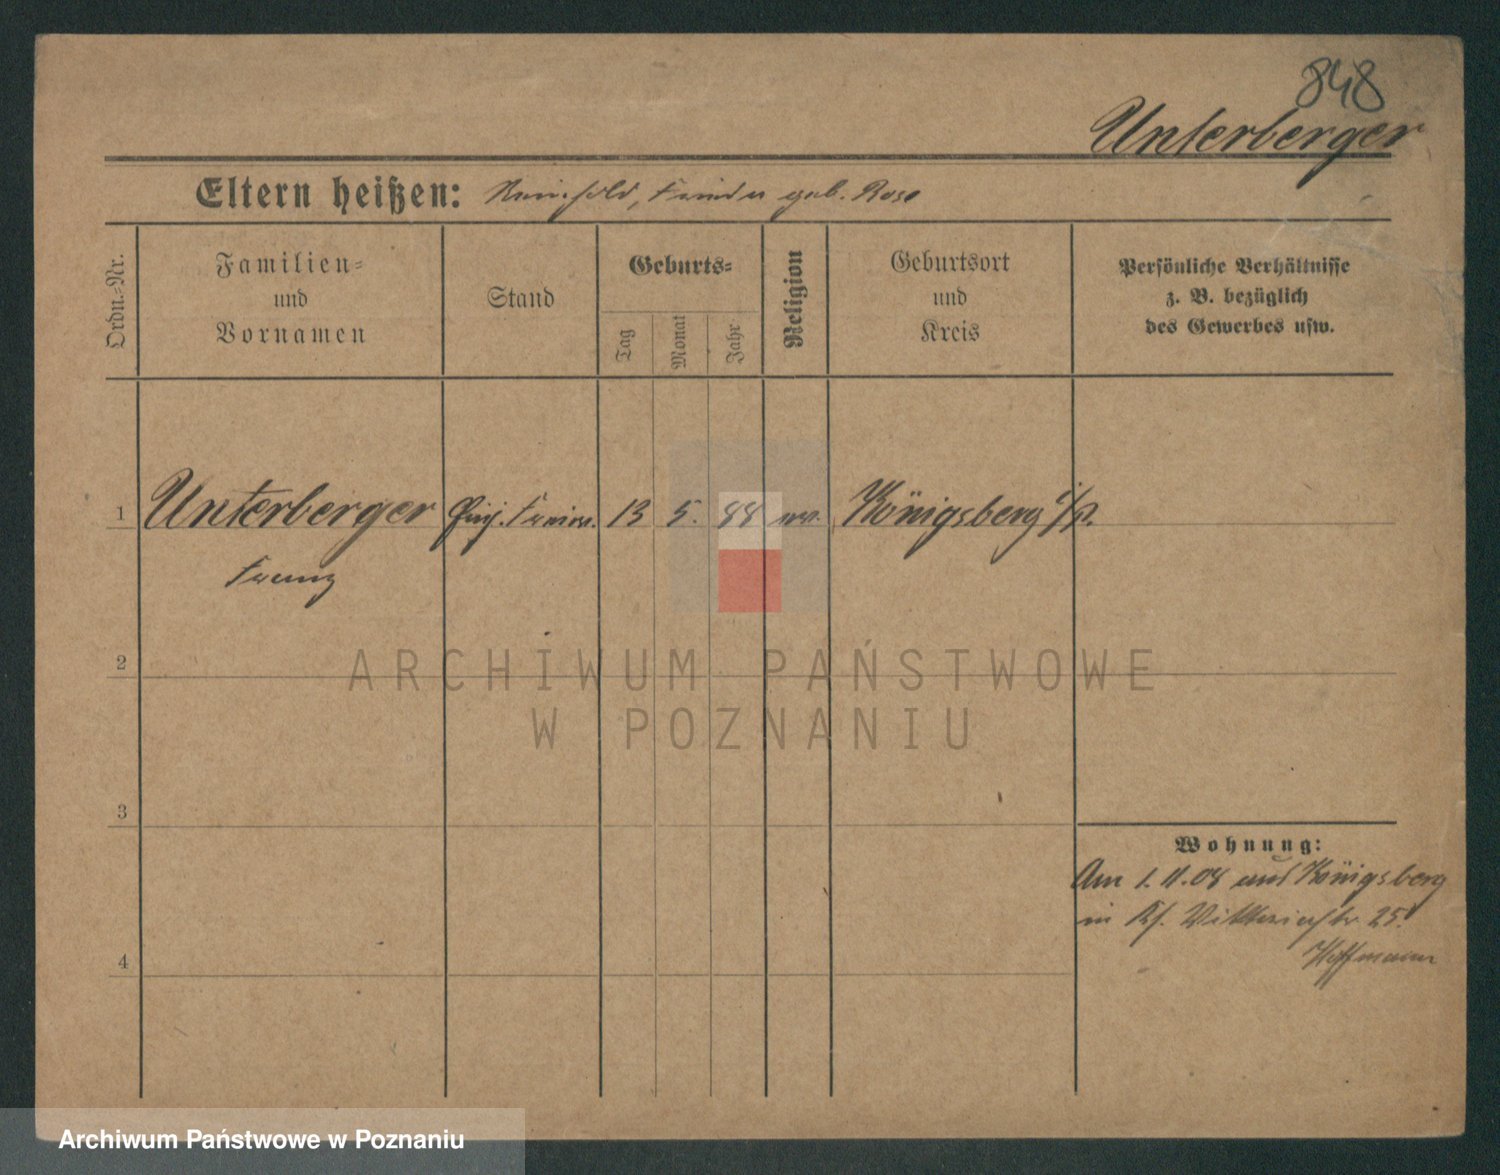 848
Unterberger
Eltern heißen: Reinhold, Frieda geb. Rose
Ordn.-Nr.
Familien-
und
Vornamen
Stand
Geburts-
Tag
Monat
Jahr
Religion
Geburtsort
und
Kreis
Persönliche Verhältnisse
z. B. bezüglich
des Gewerbes usw.
1 Unterberger 13 5. 88 Königsberg i/P.
Franz
2
ARCHIWUM PAŃSTWOWE
W POZNANIU
3
Wohnung:
Am 1.11.08 Königsberg
in 25.
Hoffmann
4
Archiwum Państwowe w Poznaniu